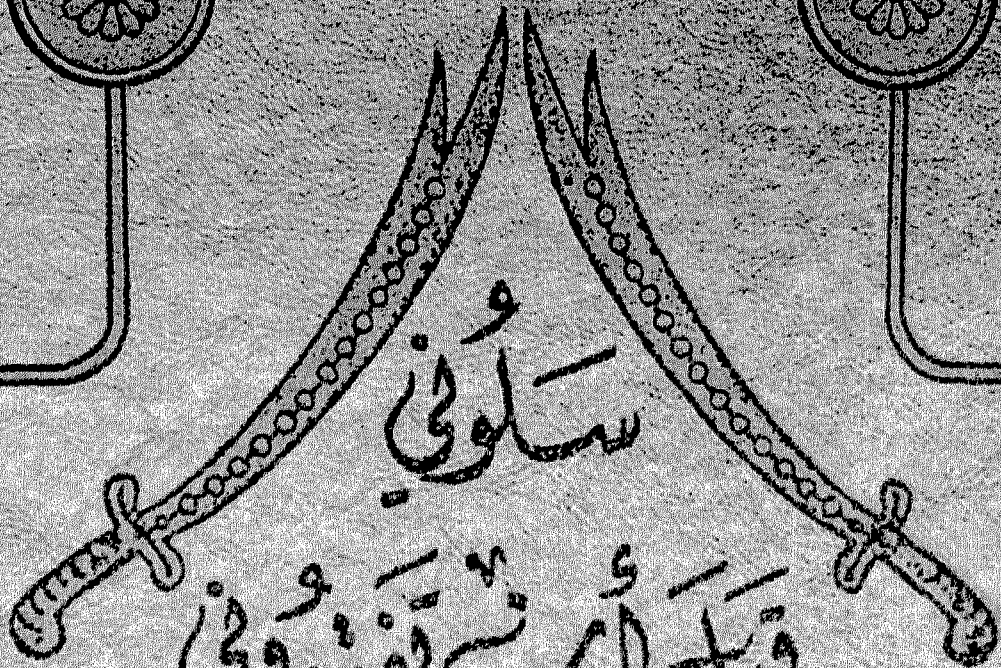 سَلُوني
قَبلَ أَن تَفْقدُوني